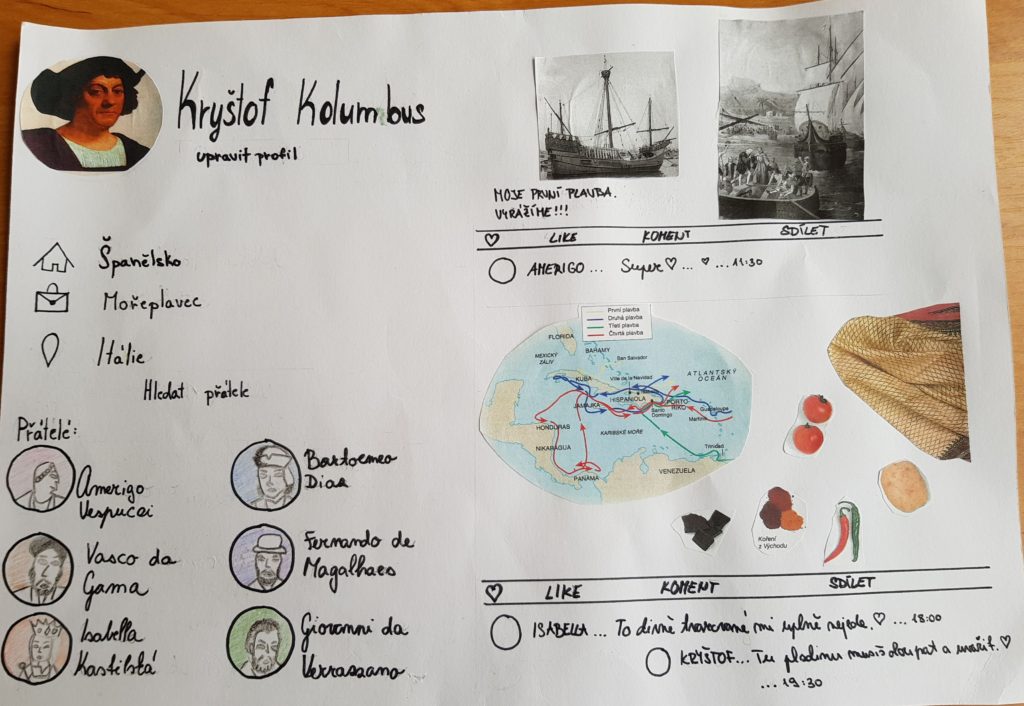 Kryštof Kolumbus
upravit profil
Španělsko
Mořeplavec
Itálie
Hledat přátek
Přátelé:
Amerigo
Vespucci
Bartoemeo
Dias
Vasco da
Gama
Fernando de
Magalhaes
Isabella
Kastilská
Giovanni da
Verrassano
MOJE PRVNÍ PLAVBA.
VYRÁŽÍME!!!
LIKE KOMENT SDÍLET
AMERIGO... Super ♡...♡... 11:30
První plavba
Druhá plavba
Třetí plavba
Čtvrtá plavba
FLORIDA
MEXICKÝ
ZÁLIV
BAHAMY
San Salvador
ATLANTSKÝ
OCEÁN
KUBA
Ville de la Navidad
HISPANIOLA
PORTO
RIKO
JAMAJKA
Santo
Domingo
Guadeloupe
Martinik
HONDURAS
KARIBSKÉ MOŘE
NIKARAGUA
Trinidad
VENEZUELA
PANAMA
Koření
z Východu
LIKE KOMENT SDÍLET
ISABELLA... To divně tvarované mi úplně nejede. ♡ ... 18:00
KRYŠTOF... Tu plodinu musíš oloupat a uvařit. ♡
... 19:30